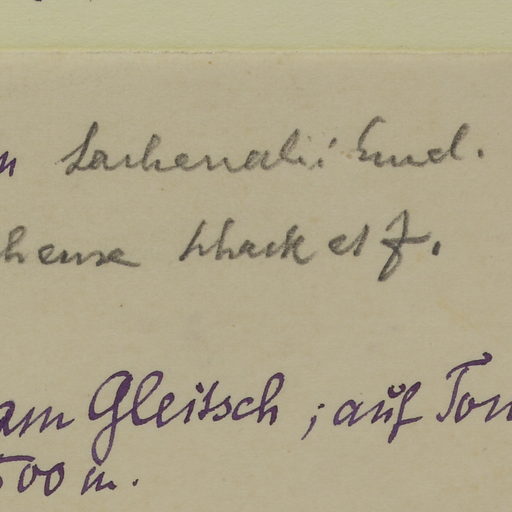 n Lachenalii Gmel.
hense Schack et f.
am Gleitsch ; auf Ton
500 m.